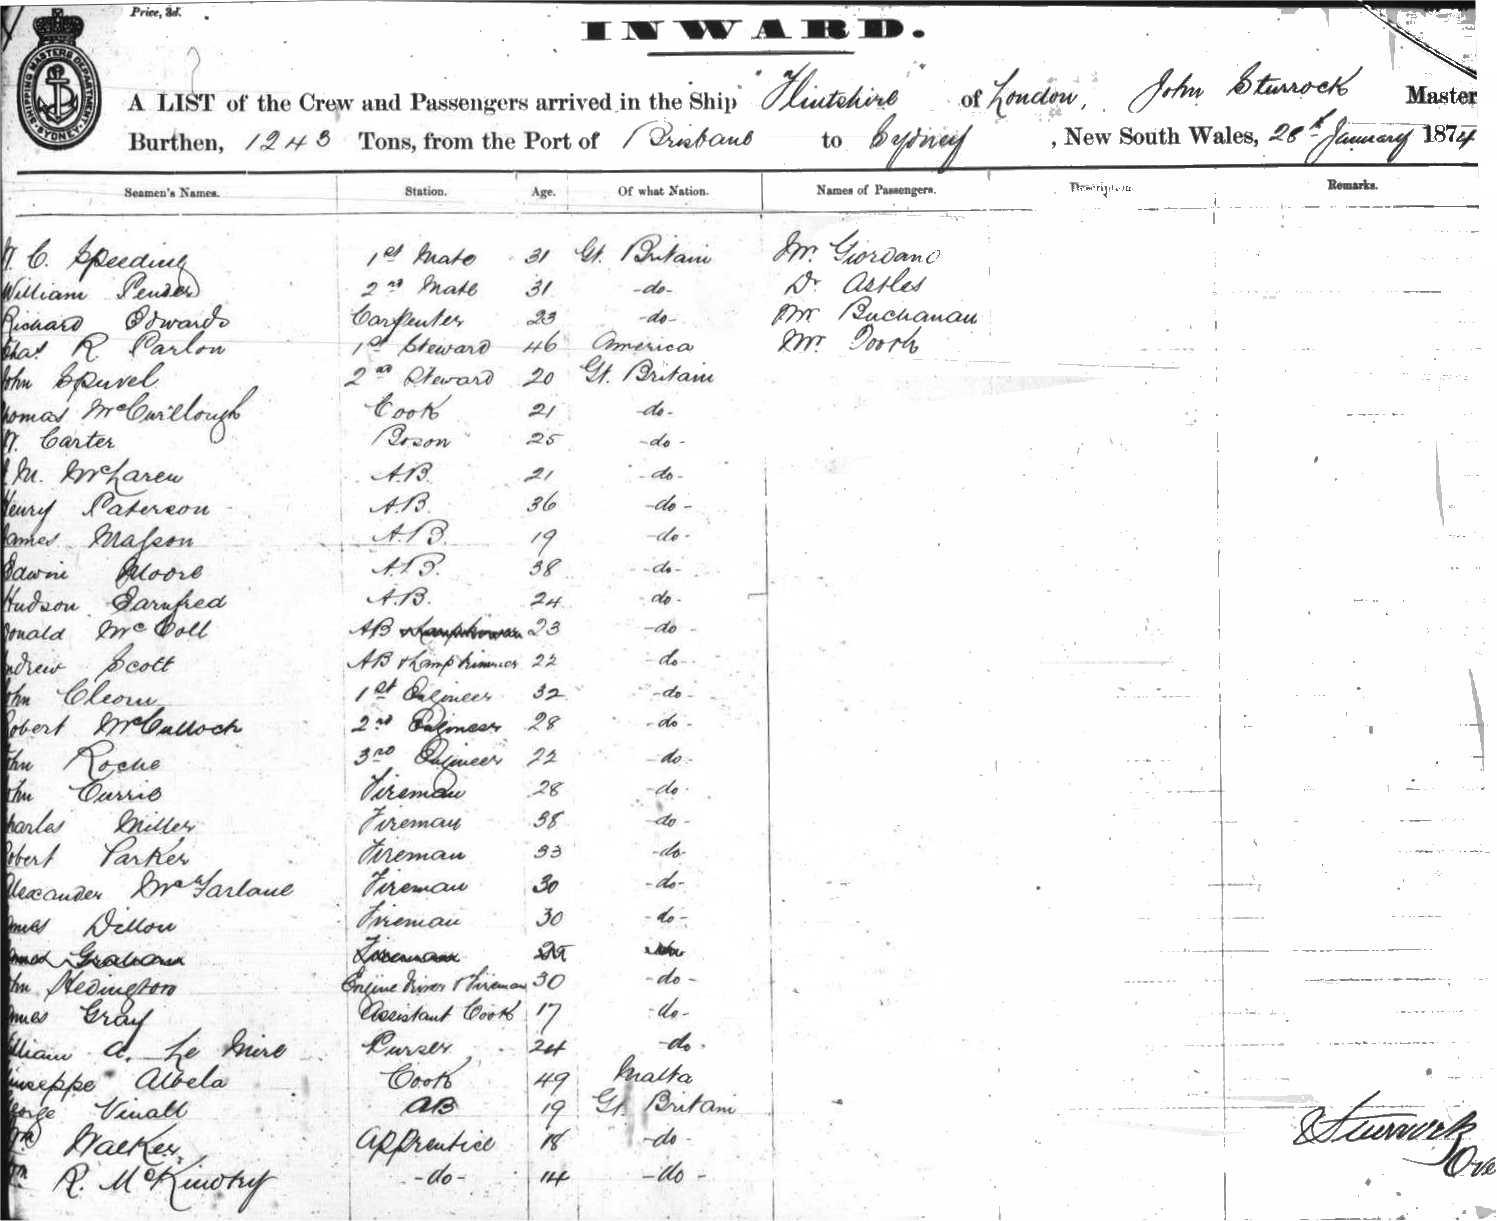 Price, 3d.
INWARD.
SHIPPING MASTERS DEPARTMENT SYDNEY
A LIST of the Crew and Passengers arrived in the Ship "Flintshire" of London, John Sturrock Master
Burthen, 1243 Tons, from the Port of Brisbane to Sydney, New South Wales, 28th January 1874
Seamen's Names. Station. Age. Of what Nation. Names of Passengers. Description Remarks.
W. C. Speeding 1st Mate 31 Gt. Britain Mr. Giordano
William Pender 2nd Mate 31 -do- Dr. Astles
Richard Edwards Carpenter 23 -do- Mr Buchanan
Chas. R. Parlon 1st Steward 46 America Mr. Tooth
John Spurel 2nd Steward 20 Gt. Britain
Thomas McCuillough Cook 21 -do-
W. Carter Boson 25 -do-
M. McLaren A.B. 21 -do-
Henry Paterson A.B. 36 -do-
James Masson A.B. 19 -do-
Edwin Moore A.B. 38 -do-
Hudson Earnfred A.B. 24 -do-
Donald McColl AB 23 -do-
Andrew Scott AB & Lamp trimmer 22 -do-
John 1st Engineer 32 -do-
Robert McCulloch 2nd Engineer 28 -do-
John Roche 3rd Engineer 22 -do-
John Currie Fireman 28 -do-
Charles Miller Fireman 38 -do-
Robert Parker Fireman 33 -do-
Alexander McFarlane Fireman 30 -do-
James Dillon Fireman 30 -do-
James Graham Fireman
John Hedington Engine Driver & Fireman 30 -do-
James Gray Assistant Cook 17 -do-
William A. Le Mire Purser 24 -do-
Giuseppe Albela Cook 49 Malta
George Vinall AB 19 Gt. Britain
Wm Walker Apprentice 18 -do-
Wm R. McKinstry -do- 14 -do-
J Sturrock